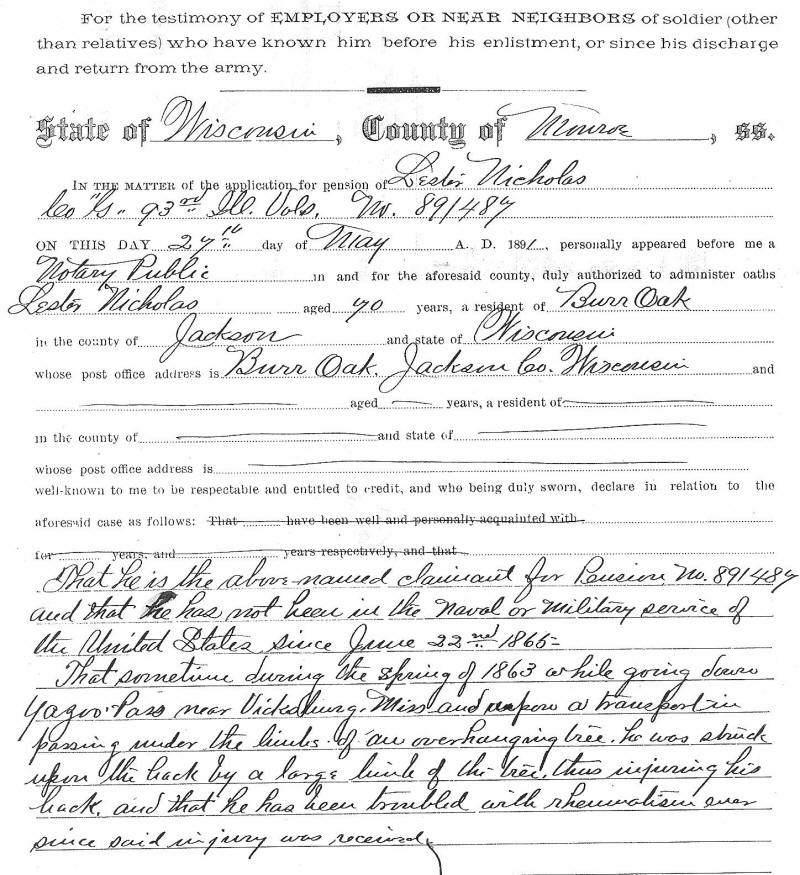 For the testimony of EMPLOYERS OR NEAR NEIGHBORS of soldier (other
than relatives) who have known him before his enlistment, or since his discharge
and return from the army.
State of Wisconsin, County of Monroe, ss.
IN THE MATTER of the application for pension of Lester Nicholas
Co "G" 93rd Ill. Vols. No. 891487
ON THIS DAY 27th day of May A. D. 1891, personally appeared before me a
Notary Public in and for the aforesaid county, duly authorized to administer oaths
Lester Nicholas aged 70 years, a resident of Burr Oak
in the county of Jackson and state of Wisconsin
whose post office address is Burr Oak, Jackson Co. Wisconsin and
aged years, a resident of
in the county of and state of
whose post office address is
well-known to me to be respectable and entitled to credit, and who being duly sworn, declare in relation to the
aforesaid case as follows: That have been well and personally acquainted with
for years, and years respectively, and that
That he is the above-named claimant for Pension No. 891487
and that he has not been in the Naval or Military service of
the United States since June 22nd 1865-
That sometime during the spring of 1863 while going down
Yazoo Pass near Vicksburg, Miss and upon a transport in
passing under the limbs of an overhanging tree. he was struck
upon the back by a large limb of the tree, thus injuring his
back, and that he has been troubled with rheumatism ever
since said injury was received